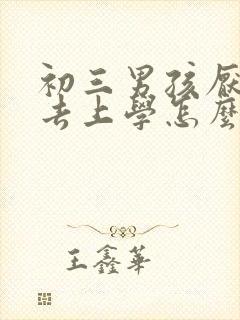 初三男孩厭
去上學怎麼
王鑫華